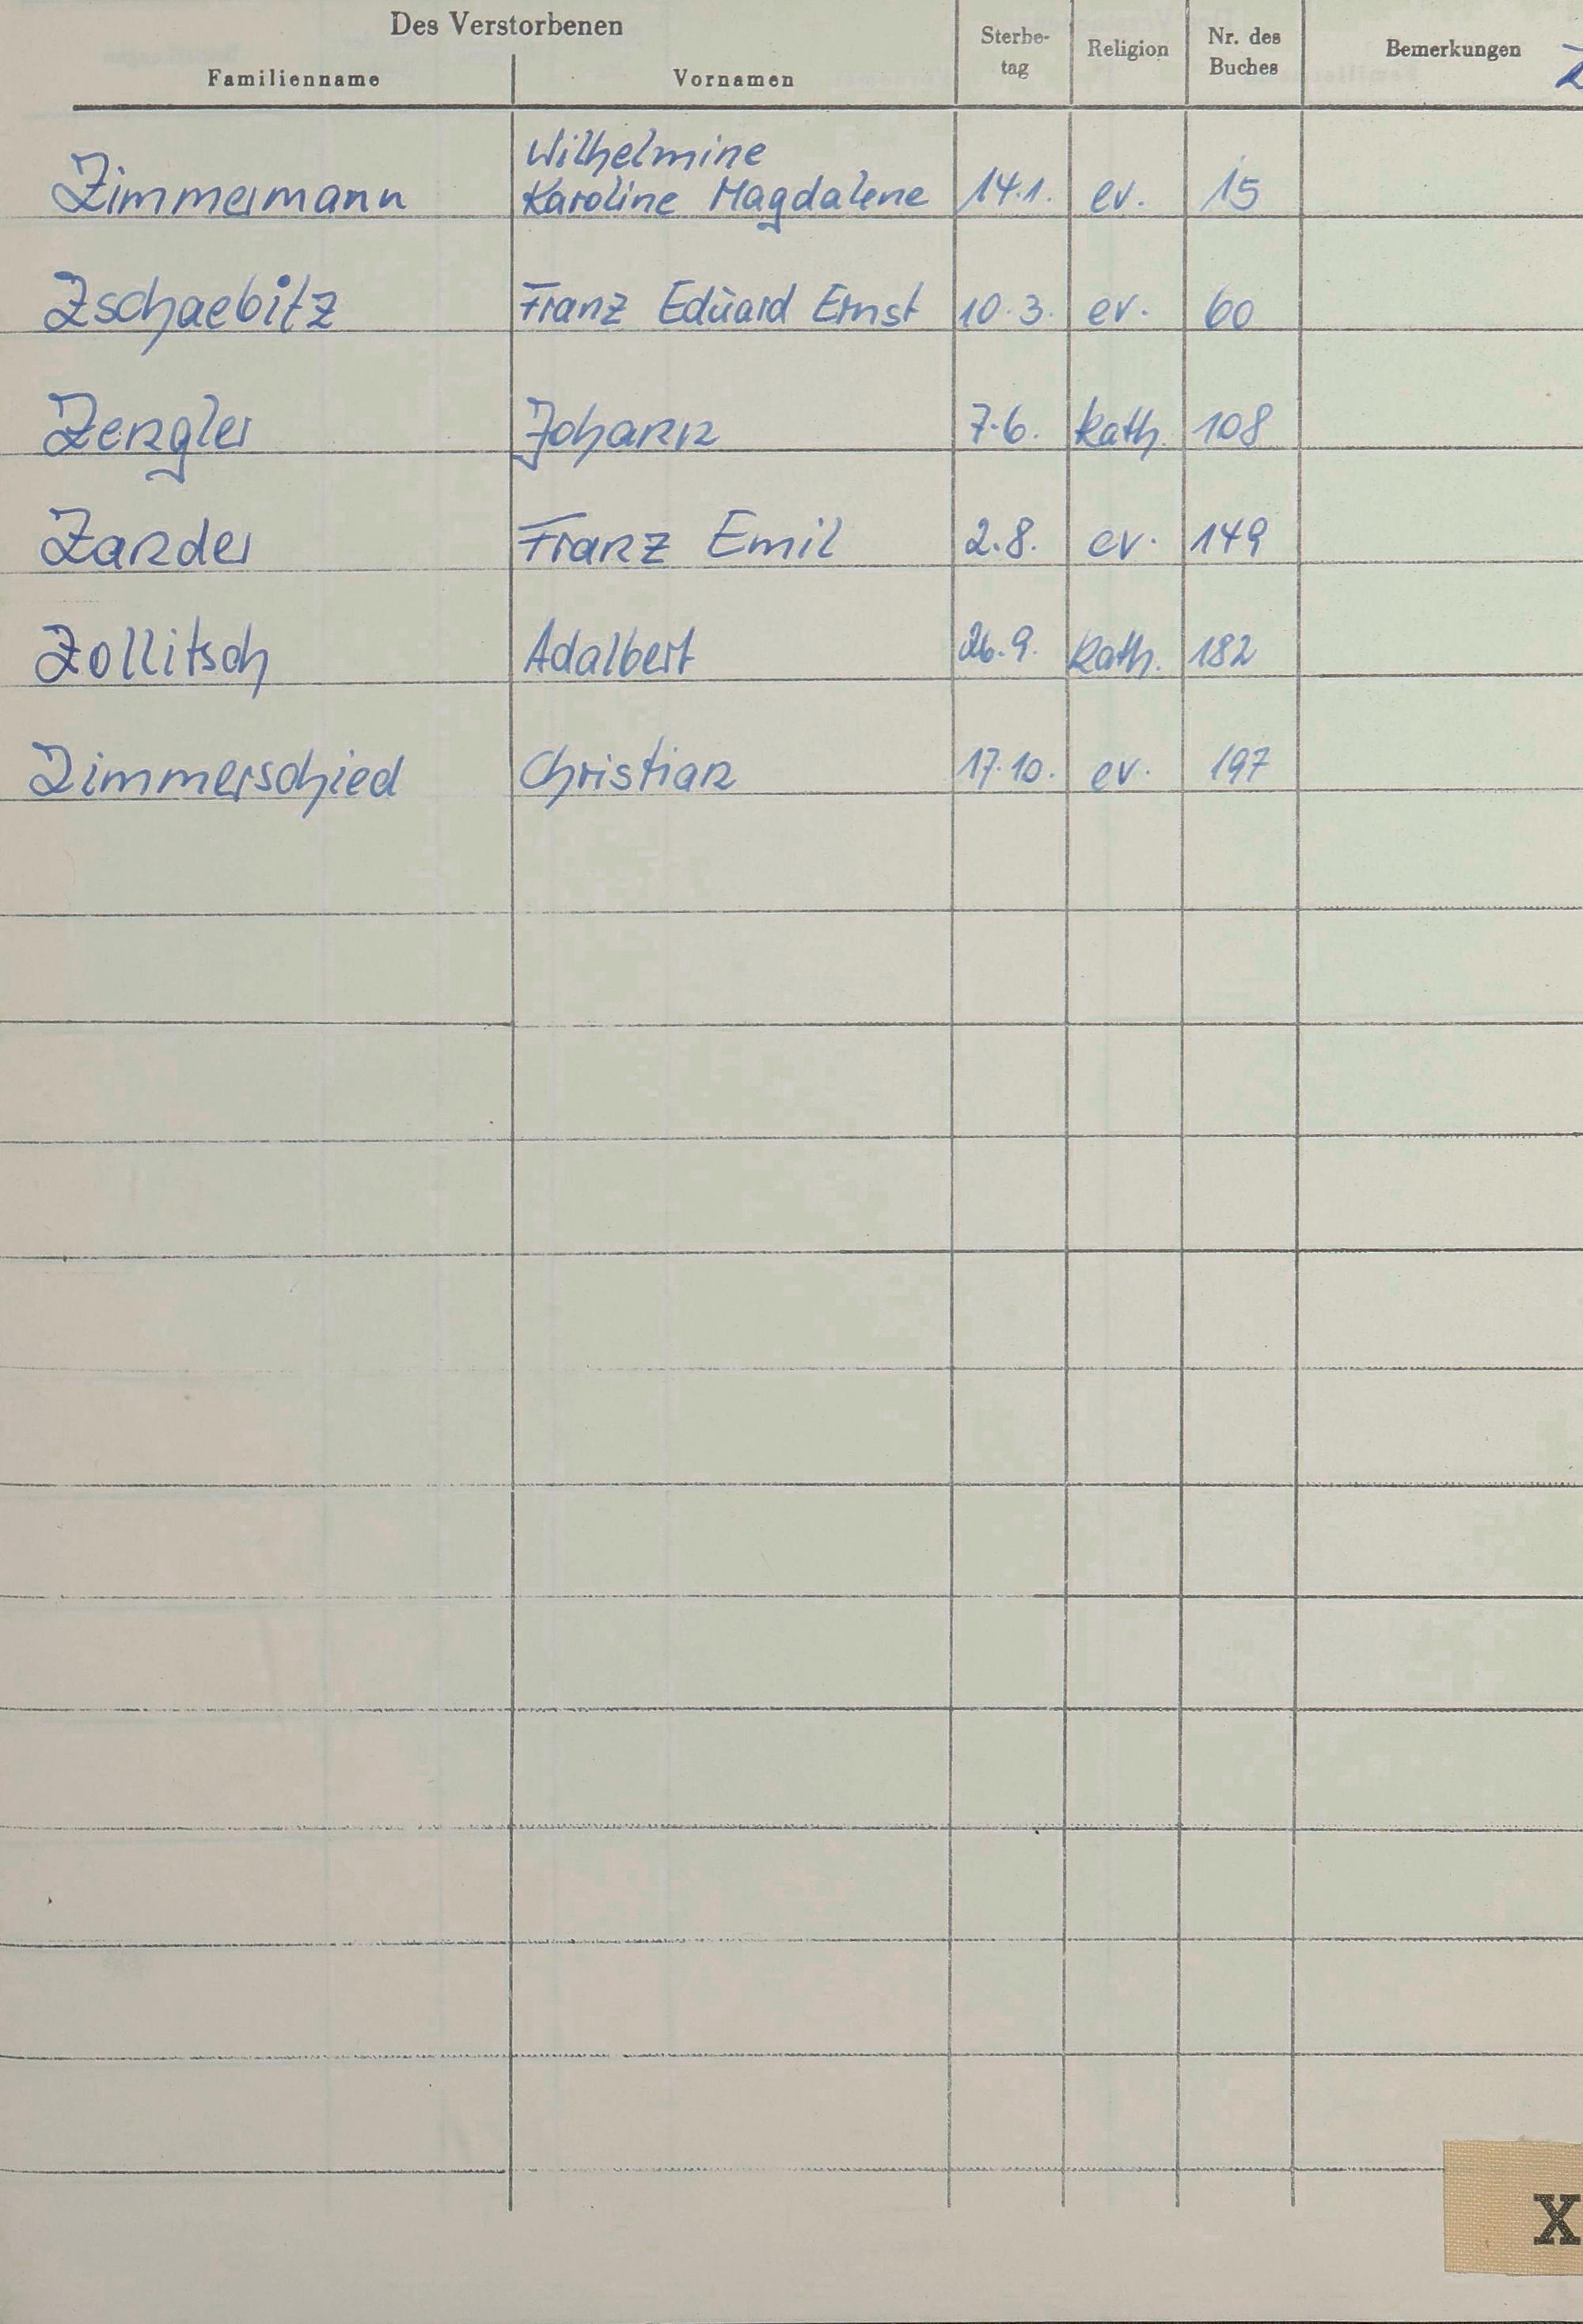 Des Verstorbenen
Familienname Vornamen Sterbe-tag Religion Nr. des Buches Bemerkungen Z
Wilhelmine
Zimmermann Karoline Magdalene 14.1. ev. 15
Zschaebitz Franz Eduard Ernst 10.3. ev. 60
Zengler Johann 7.6. kath. 108
Zander Franz Emil 2.8. ev. 149
Zollitsch Adalbert 26.9. kath. 182
Zimmerschied Christian 17.10. ev. 197
X